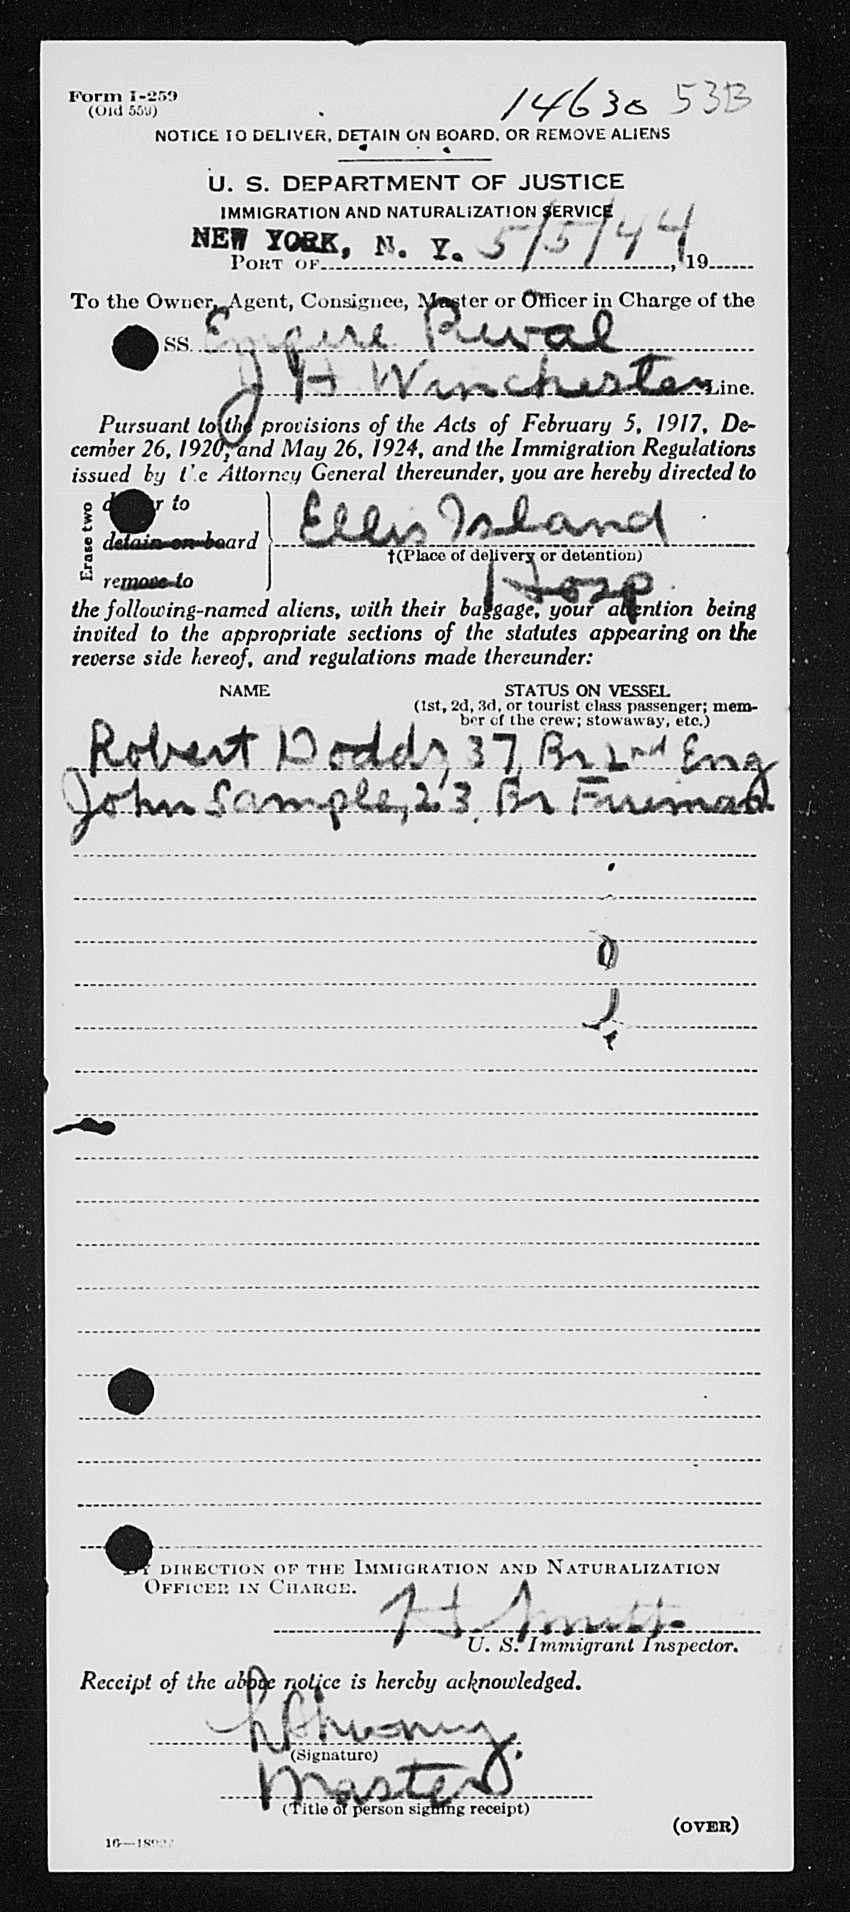 Form I-259
(Old 559)
14630 53B
NOTICE TO DELIVER, DETAIN ON BOARD, OR REMOVE ALIENS
U. S. DEPARTMENT OF JUSTICE
IMMIGRATION AND NATURALIZATION SERVICE
NEW YORK, N. Y. 5/5/44
PORT OF , 19
To the Owner, Agent, Consignee, Master or Officer in Charge of the
SS. Empire Rival
J H Winchester Line.
Pursuant to the provisions of the Acts of February 5, 1917, De-
cember 26, 1920, and May 26, 1924, and the Immigration Regulations
issued by the Attorney General thereunder, you are hereby directed to
Erase two
r to
detain on board
remove to
Ellis Island
†(Place of delivery or detention)
Hosp.
the following-named aliens, with their baggage, your attention being
invited to the appropriate sections of the statutes appearing on the
reverse side hereof, and regulations made thereunder:
NAME STATUS ON VESSEL
(1st, 2d, 3d, or tourist class passenger; mem-
ber of the crew; stowaway, etc.)
Robert Dodds, 37, Br 2nd Eng
John Sample, 23, Br Fireman
BY DIRECTION OF THE IMMIGRATION AND NATURALIZATION
OFFICER IN CHARGE.
H
U. S. Immigrant Inspector.
Receipt of the above notice is hereby acknowledged.
(Signature)
Master
(Title of person signing receipt)
(OVER)